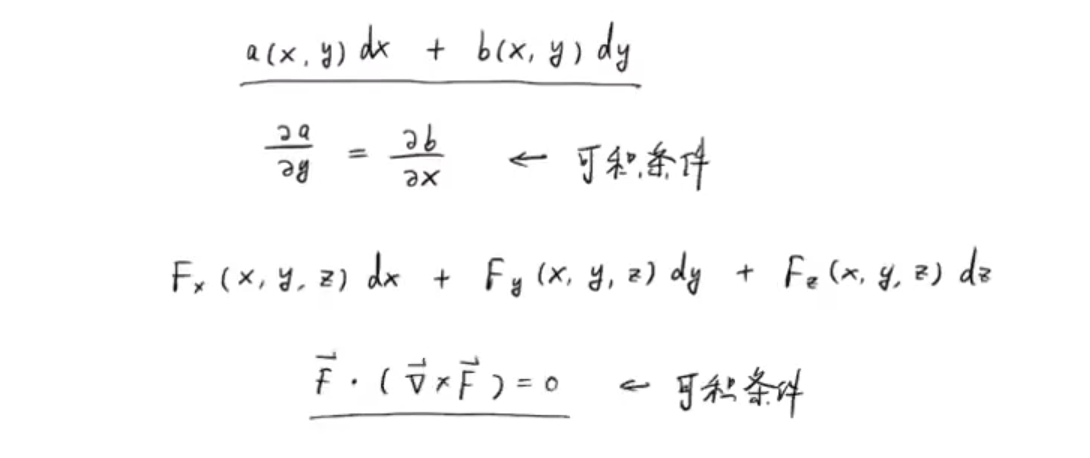 a(x, y) dx + b(x, y) dy
∂a/∂y = ∂b/∂x ← 可积条件
Fₓ(x, y, z) dx + F_y(x, y, z) dy + F_z(x, y, z) dz
F⃗ · (∇⃗ × F⃗) = 0 ← 可积条件